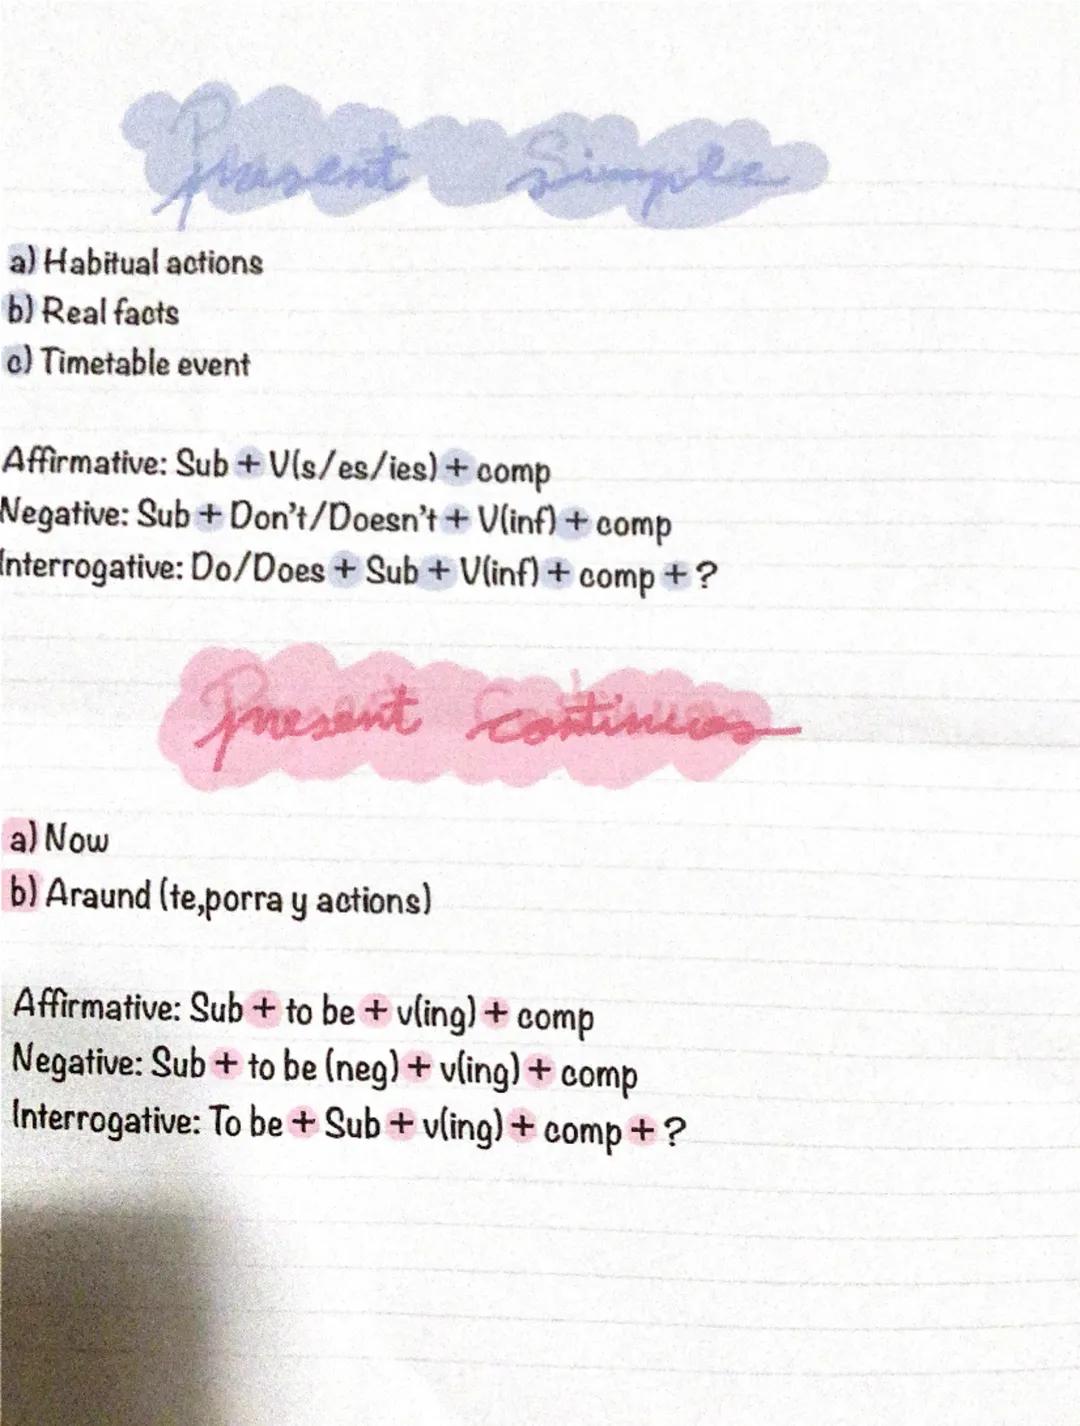 Present Simple
a) Habitual actions
b) Real facts
c) Timetable event
Affirmative: Sub + V(s/es/ies) + comp
Negative: Sub + Don't/Doesn't + V(inf) + comp
Interrogative: Do/Does + Sub + V(inf) + comp + ?
Present continuos
a) Now
b) Araund (te,porra y actions)
Affirmative: Sub + to be + v(ing) + comp
Negative: Sub + to be (neg) + v(ing) + comp
Interrogative: To be + Sub + v(ing) + comp + ?